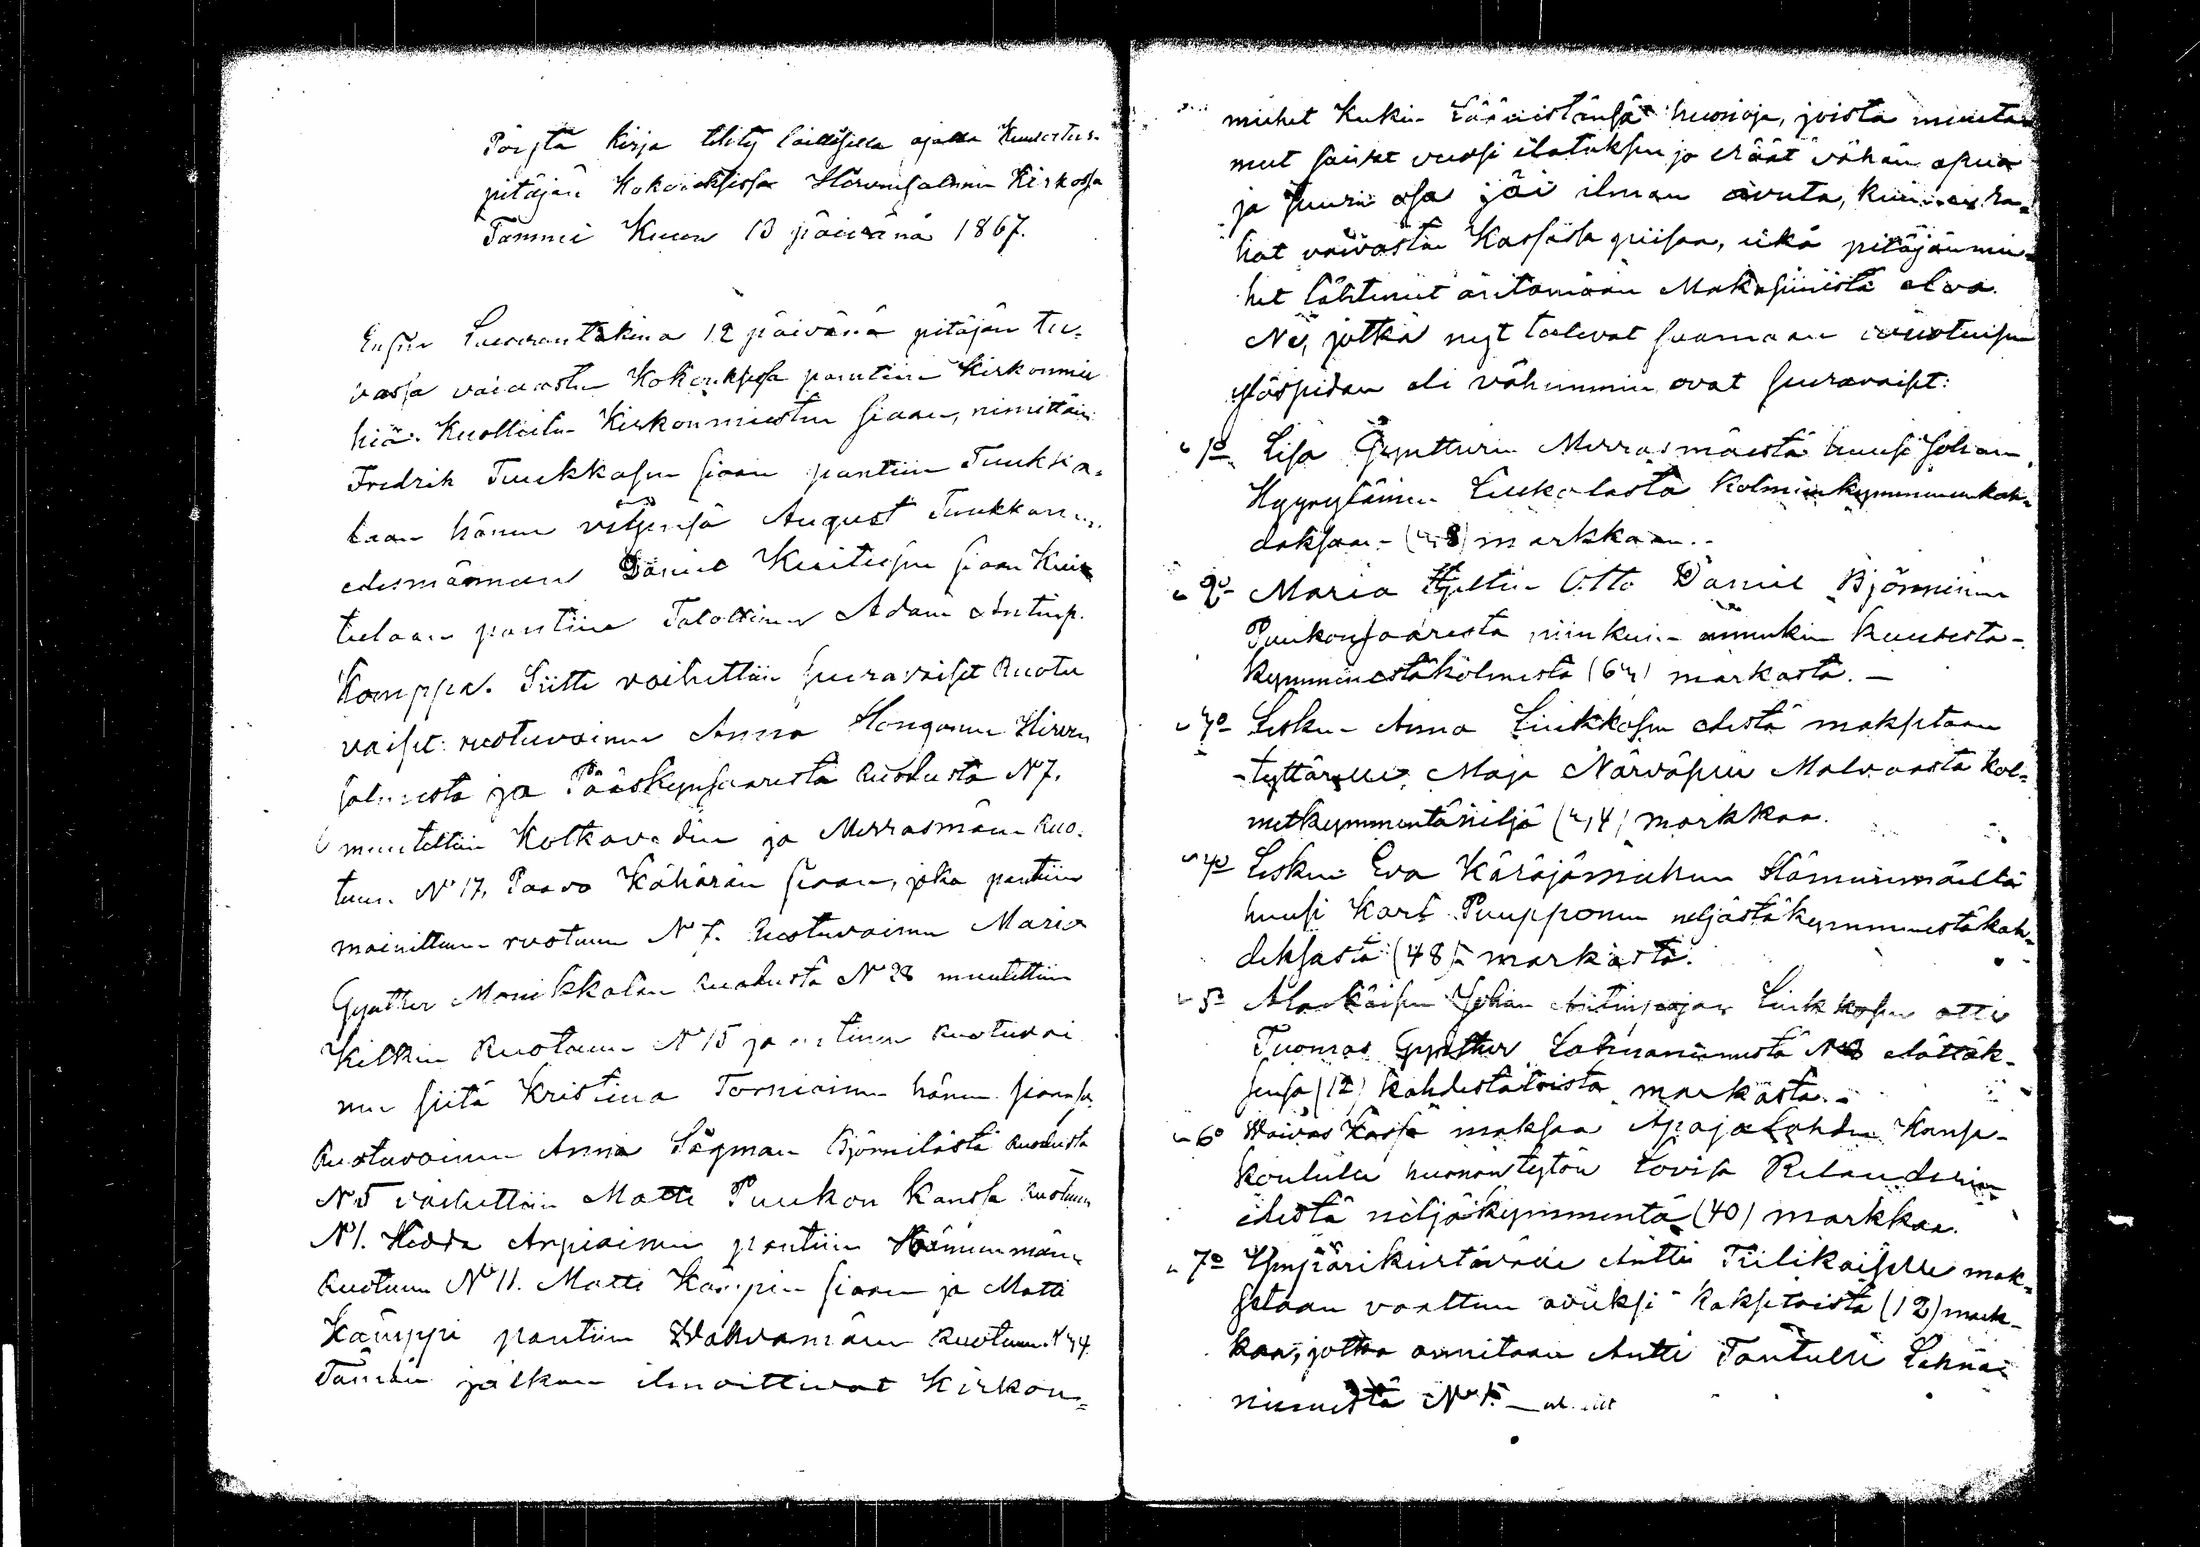 Pöystä kirja tehty laillisella ajalla kuulutetus-
pitäjän Kokouksessa Hirvensalmen Kirkossa
Tammi Kuun 13 päivänä 1867.
Ensin Luvorantakina 12 päivänä pitäjän tu-
vassa vaivasten Kokouksessa pantiin Kirkonmie
hiä Kuolleitten Kirkonmiesten siaan, nimittäin
Fredrik Tuukkasen siaan pantiin Tuukka-
laan hänen veljensä August Tuukkanen
edesmännen Daniel Kuitusen siaan Kui-
tulaan pantiin Talollinen Adam Antinp.
Kamppa. Siitte vaihettiin seuravaiset Ruotu
vaiset: ruotuvainen Anna Hongonen Hirven
salmesta ja Pääskynsaaresta Ruodusta N 7.
muutettiin Kotkave den ja Merrasmäen Ruo-
tuun N 17, Paavo Kähärän siaan, joka pantiin
mainittuun ruotuun N 7. Ruotuvainen Maria
Gynther Monikkalan Ruodusta N 28 muutettiin
Kilkin Ruotuun N 15 ja entinen ruotuvai
nen siitä Kristina Torniainen hänen siaansa.
Ruotuvainen Anna Sägman Björnilästä Ruodusta
N 5 vaihettiin Matti Puukon kanssa Ruotuun
N 1. Hedda Arpiainen pantiin Hämeenmäen
Ruotuun N 11. Matti Kämpin siaan ja Matti
Kämppi pantiin Wahvamäen Ruotuun N 34.
Tämän jälkeen ilmoittivat Kirkon-
miehet kukin Lääniistänsä huonoja, joista muuta-
mut saivat vuosi elatuksen ja eräät vähän apua
ja suurin osa jäi ilman avuta, kuin ei ra-
hat vaivasten Kassassa piisaa, eikä pitäjänmie-
het lähteneet antamaan Makasiinista eloa.
Ne, jotka nyt tulevat saamaan vuotuisen
ylöspidon eli vähemmin ovat seuravaiset:
1o Lisa Gyntturin Merrasmäestä huusi Johan
Hyyryläinen Liukolasta kolmeenkymmeneenkah-
deksaan (38) markkaan.
2o Maria Hyltin Otto Daniel Björnninen
Puukonsaaresta niinkuin ennenkin kuudesta-
kymmenestäkolmesta (63) markasta. —
3o Lesken Anna Liukkosen edestä maksetaan
tyttärelle, Maja Närväselle Malvaasta kol-
metkymmentäneljä (34) markkaa.
4o Lesken Eva Käräjämiehen Hämeenmäeltä
huusi Karl Puupponen neljästäkymmenestäkah-
deksasta (48) markasta.
5o Alaikäisen Johan Antinpojan Liukkosen otti
Tuomas Gynther Lahnaniemestä N 8 elättäk-
sensä (12) kahdestatoista markasta.
6o Waivas Kassa maksaa Apajalahden Kansa-
koululle huonon tytön Lovisa Relanderin
edestä neljäkymmentä (40) markkaa.
7o Ympärikiertävälle Antti Tiilikaiselle mak-
setaan vaatteen avuksi kaksitoista (12) mark-
kaa, jotka annetaan Antti Tantulle Lahna-
niemestä N 5.